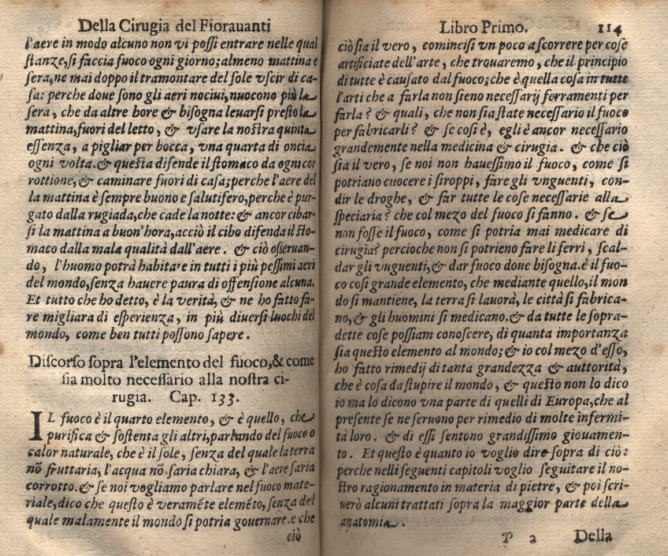 Della Cirugia del Fiorauanti
l'aere in modo alcuno non vi possi entrare nelle qual
stanze, si faccia fuoco ogni giorno; almeno mattina e
sera, ne mai doppo il tramontare del sole vscir di ca-
sa: perche doue sono gli aeri nociui, nuocono più la
sera, che da altre hore & bisogna leuarsi presto la
mattina, fuori del letto, & vsare la nostra quinta
essenza, a pigliar per bocca, vna quarta di oncia
ogni volta. & questa difende il stomaco da ogni cor
rottione, & caminare fuori di casa; perche l'aere del
la mattina è sempre buono e salutifero, perche è pur-
gato dalla rugiada, che cade la notte: & ancor cibar-
si la mattina a buon'hora, acciò il cibo difenda il sto-
maco dalla mala qualità dell'aere. & ciò osseruan-
do, l'huomo potrà habitare in tutti i più pessimi aeri
del mondo, senza hauere paura di offensione alcuna.
Et tutto che ho detto, è la verità, & ne ho fatto fa-
re migliara di esperienza, in più diuersi luochi del
mondo, come ben tutti possono sapere.
Discorso sopra l'elemento del fuoco, & come
sia molto necessario alla nostra ci-
rugia. Cap. 133.
IL fuoco è il quarto elemento, & è quello, che
purifica & sostenta gli altri, parlando del fuoco o
calor naturale, che è il sole, senza del quale la terra
nõ fruttaria, l'acqua nõ saria chiara, & l'aere saria
corrotto. & se noi vogliamo parlare nel fuoco mate-
riale, dico che questo è veramẽte elemẽto, senza del
quale malamente il mondo si potria gouernare. e che
ciò
Libro Primo. 114
ciò sia il vero, comincisi vn poco a scorrere per cose
artificiate dell'arte, che trouaremo, che il principio
di tutte è causato dal fuoco; che è quella cosa in tutte
l'arti che a farla non sieno necessarij ferramenti per
farla? & quali, che non sia state necessario il fuoco
per fabricarli? & se cosi è, egli è ancor necessario
grandemente nella medicina & cirugia. & che ciò
sia il vero, se noi non hauessimo il fuoco, come si
potriano cuocere i siroppi, fare gli vnguenti, con-
dir le droghe, & far tutte le cose necessarie alla
speciaria? che col mezo del fuoco si fanno. & se
non fosse il fuoco, come si potria mai medicare di
cirugia? percioche non si potrieno fare li ferri, scal-
dar gli vnguenti, & dar fuoco doue bisogna. è il fuo-
co cosi grande elemento, che mediante quello, il mon
do si mantiene, la terra si lauora, le città si fabrica-
no, & gli huomini si medicano. & da tutte le sopra-
dette cose possiam conoscere, di quanta importanza
sia questo elemento al mondo; & io col mezo d'esso,
ho fatto rimedij di tanta grandezza & auttorità,
che è cosa da stupire il mondo, & questo non lo dico
io ma lo dicono vna parte di quelli di Europa, che al
presente se ne seruono per rimedio di molte infermi-
tà loro. & di essi sentono grandissimo giouamen-
to. Et questo è quanto io voglio dire sopra di ciò:
perche nelli seguenti capitoli voglio seguitare il no-
stro ragionamento in materia di pietre, & poi scri-
uerò alcuni trattati sopra la maggior parte della
anatomia.
P 2 Della